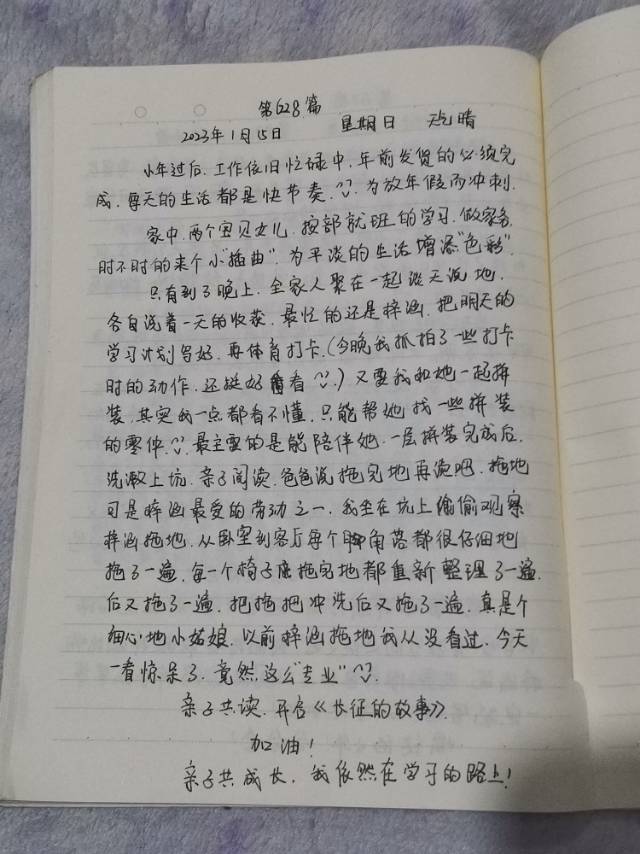 第628篇
2023年1月15日 星期日 天气晴
小年过后，工作依旧忙碌中，年前发货的必须完
成，每天的生活都是快节奏，为放年假而冲刺。
家中，两个宝贝女儿，按部就班的学习，做家务，
时不时的来个小"插曲"，为平淡的生活增添"色彩"。
只有到了晚上，全家人聚在一起谈天说地，
各自说着一天的收获，最忙的还是梓涵，把明天的
学习计划写好，再体育打卡，(今晚我抓拍了一些打卡
时的动作，还挺好看) 又要我和她一起拼
装，其实我一点都看不懂，只能帮她找一些拼装
的零件，最主要的是能陪伴她，一层拼装完成后，
洗漱上炕，亲子阅读，爸爸说拖完地再读吧，拖地
可是梓涵最爱的劳动之一，我坐在炕上偷偷观察
梓涵拖地，从卧室到客厅每个角落都很仔细地
拖了一遍，每一个椅子底拖完地都重新整理了一遍，
后又拖了一遍，把拖把冲洗后又拖了一遍，真是个
细心地小姑娘，以前梓涵拖地我从没看过，今天
一看惊呆了，竟然这么"专业"。
亲子共读，开启《长征的故事》。
加油！
亲子共成长，我依然在学习的路上！